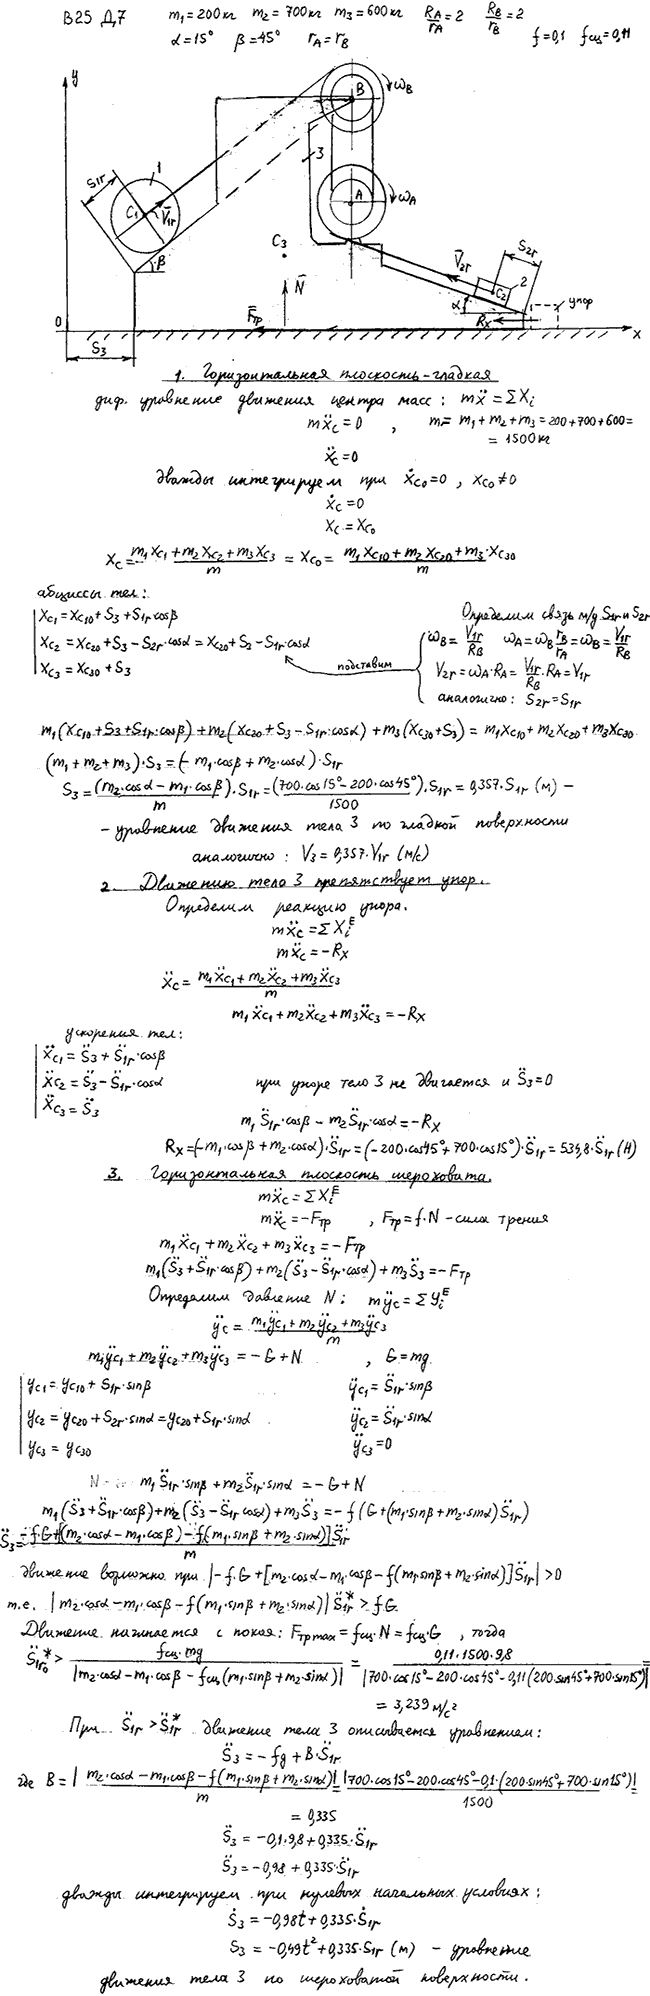 В25 Д7 m₁=200кг m₂=700кг m₃=600кг R_A/r_A=2 R_B/r_B=2
α=15° β=45° r_A=r_B f=0,1 fсц=0,11
y
B
ω_B
S1r
1
3
A
ω_A
C₁
V̄1r
β
C₃
N̄
V̄2r
S2r
2
C₂
α
упор
0
F̄тр
Rx
x
S₃
1. Горизонтальная плоскость-гладкая
диф. уравнение движения центра масс: mẍ=ΣXᵢ
mẍc=0 , m=m₁+m₂+m₃=200+700+600=
=1500кг
ẍc=0
дважды интегрируем при ẋc₀=0, xc₀≠0
ẋc=0
xc=xc₀
xc=(m₁xc₁+m₂xc₂+m₃xc₃)/m = xc₀= (m₁xc₁₀+m₂xc₂₀+m₃·xc₃₀)/m
абциссы тел:
xc₁=xc₁₀+S₃+S1r·cosβ
xc₂=xc₂₀+S₃-S2r·cosα=xc₂₀+S₃-S1r·cosα
xc₃=xc₃₀+S₃
подставим
Определим связь м/д S1r и S2r
ω_B=V1r/R_B ω_A=ω_B r_B/r_A=ω_B=V1r/R_B
V2r=ω_A·R_A=V1r/R_B·R_A=V1r
аналогично: S2r=S1r
m₁(xc₁₀+S₃+S1r·cosβ)+m₂(xc₂₀+S₃-S1r·cosα)+m₃(xc₃₀+S₃)=m₁xc₁₀+m₂xc₂₀+m₃xc₃₀
(m₁+m₂+m₃)·S₃=(-m₁cosβ+m₂cosα)·S1r
S₃=(m₂·cosα-m₁·cosβ)/m·S1r=(700·cos15°-200·cos45°)/1500·S1r=0,357·S1r (м) –
- уравнение движения тела 3 по гладкой поверхности
аналогично: V₃=0,357·V1r (м/с)
2. Движению тело 3 препятствует упор.
Определим реакцию упора.
mẍc=ΣXᵢᴱ
mẍc=-Rx
ẍc=(m₁ẍc₁+m₂ẍc₂+m₃ẍc₃)/m
m₁ẍc₁+m₂ẍc₂+m₃ẍc₃=-Rx
ускорения тел:
ẍc₁=S̈₃+S̈1r·cosβ
ẍc₂=S̈₃-S̈1r·cosα
ẍc₃=S̈₃
при упоре тело 3 не двигается и S̈₃=0
m₁S̈1r·cosβ-m₂S̈1r·cosα=-Rx
Rx=(-m₁·cosβ+m₂·cosα)·S̈1r=(-200·cos45°+700·cos15°)·S̈1r=534,8·S̈1r (Н)
3. Горизонтальная плоскость шероховата.
mẍc=ΣXᵢᴱ
mẍc=-Fтр , Fтр=f·N - сила трения
m₁ẍc₁+m₂ẍc₂+m₃ẍc₃=-Fтр
m₁(S̈₃+S̈1r·cosβ)+m₂(S̈₃-S̈1r·cosα)+m₃S̈₃=-Fтр
Определим давление N: mÿc=ΣYᵢᴱ
ÿc=(m₁ÿc₁+m₂ÿc₂+m₃ÿc₃)/m
m₁ÿc₁+m₂ÿc₂+m₃ÿc₃=-G+N , G=mg
yc₁=yc₁₀+S1r·sinβ ÿc₁=S̈1r·sinβ
yc₂=yc₂₀+S2r·sinα=yc₂₀+S1r·sinα ÿc₂=S̈1r·sinα
yc₃=yc₃₀ ÿc₃=0
m₁S̈1r·sinβ+m₂S̈1r·sinα=-G+N
m₁(S̈₃+S̈1r·cosβ)+m₂(S̈₃-S̈1r·cosα)+m₃S̈₃=-f(G+(m₁sinβ+m₂·sinα)S̈1r)
S̈₃=(-f·G+[(m₂·cosα-m₁·cosβ)-f(m₁·sinβ+m₂·sinα)]S̈1r)/m
движение возможно при |-f·G+[m₂·cosα-m₁·cosβ-f(m₁sinβ+m₂·sinα)]S̈1r|>0
т.е. |m₂·cosα-m₁·cosβ-f(m₁·sinβ+m₂·sinα)|S̈1r*>fG
Движение начинается с покоя: Fтр max=fсц·N=fсц·G , тогда
S̈1r₀*>(fсц·mg)/|m₂·cosα-m₁·cosβ-fсц(m₁·sinβ+m₂·sinα)|=(0,11·1500·9,8)/|700·cos15°-200·cos45°-0,11(200sin45°+700·sin15°)|=
=3,239 м/с²
При S̈1r>S̈1r* движение тела 3 описывается уравнением:
S̈₃=-fg+B·S̈1r
где B=|m₂·cosα-m₁·cosβ-f(m₁·sinβ+m₂·sinα)|/m=|700·cos15°-200·cos45°-0,1·(200·sin45°+700·sin15°)|/1500=
=0,335
S̈₃=-0,1·9,8+0,335·S̈1r
S̈₃=-0,98+0,335·S̈1r
дважды интегрируем при нулевых начальных условиях:
Ṡ₃=-0,98t+0,335·Ṡ1r
S₃=-0,49t²+0,335·S1r (м) - уравнение
движения тела 3 по шероховатой поверхности.